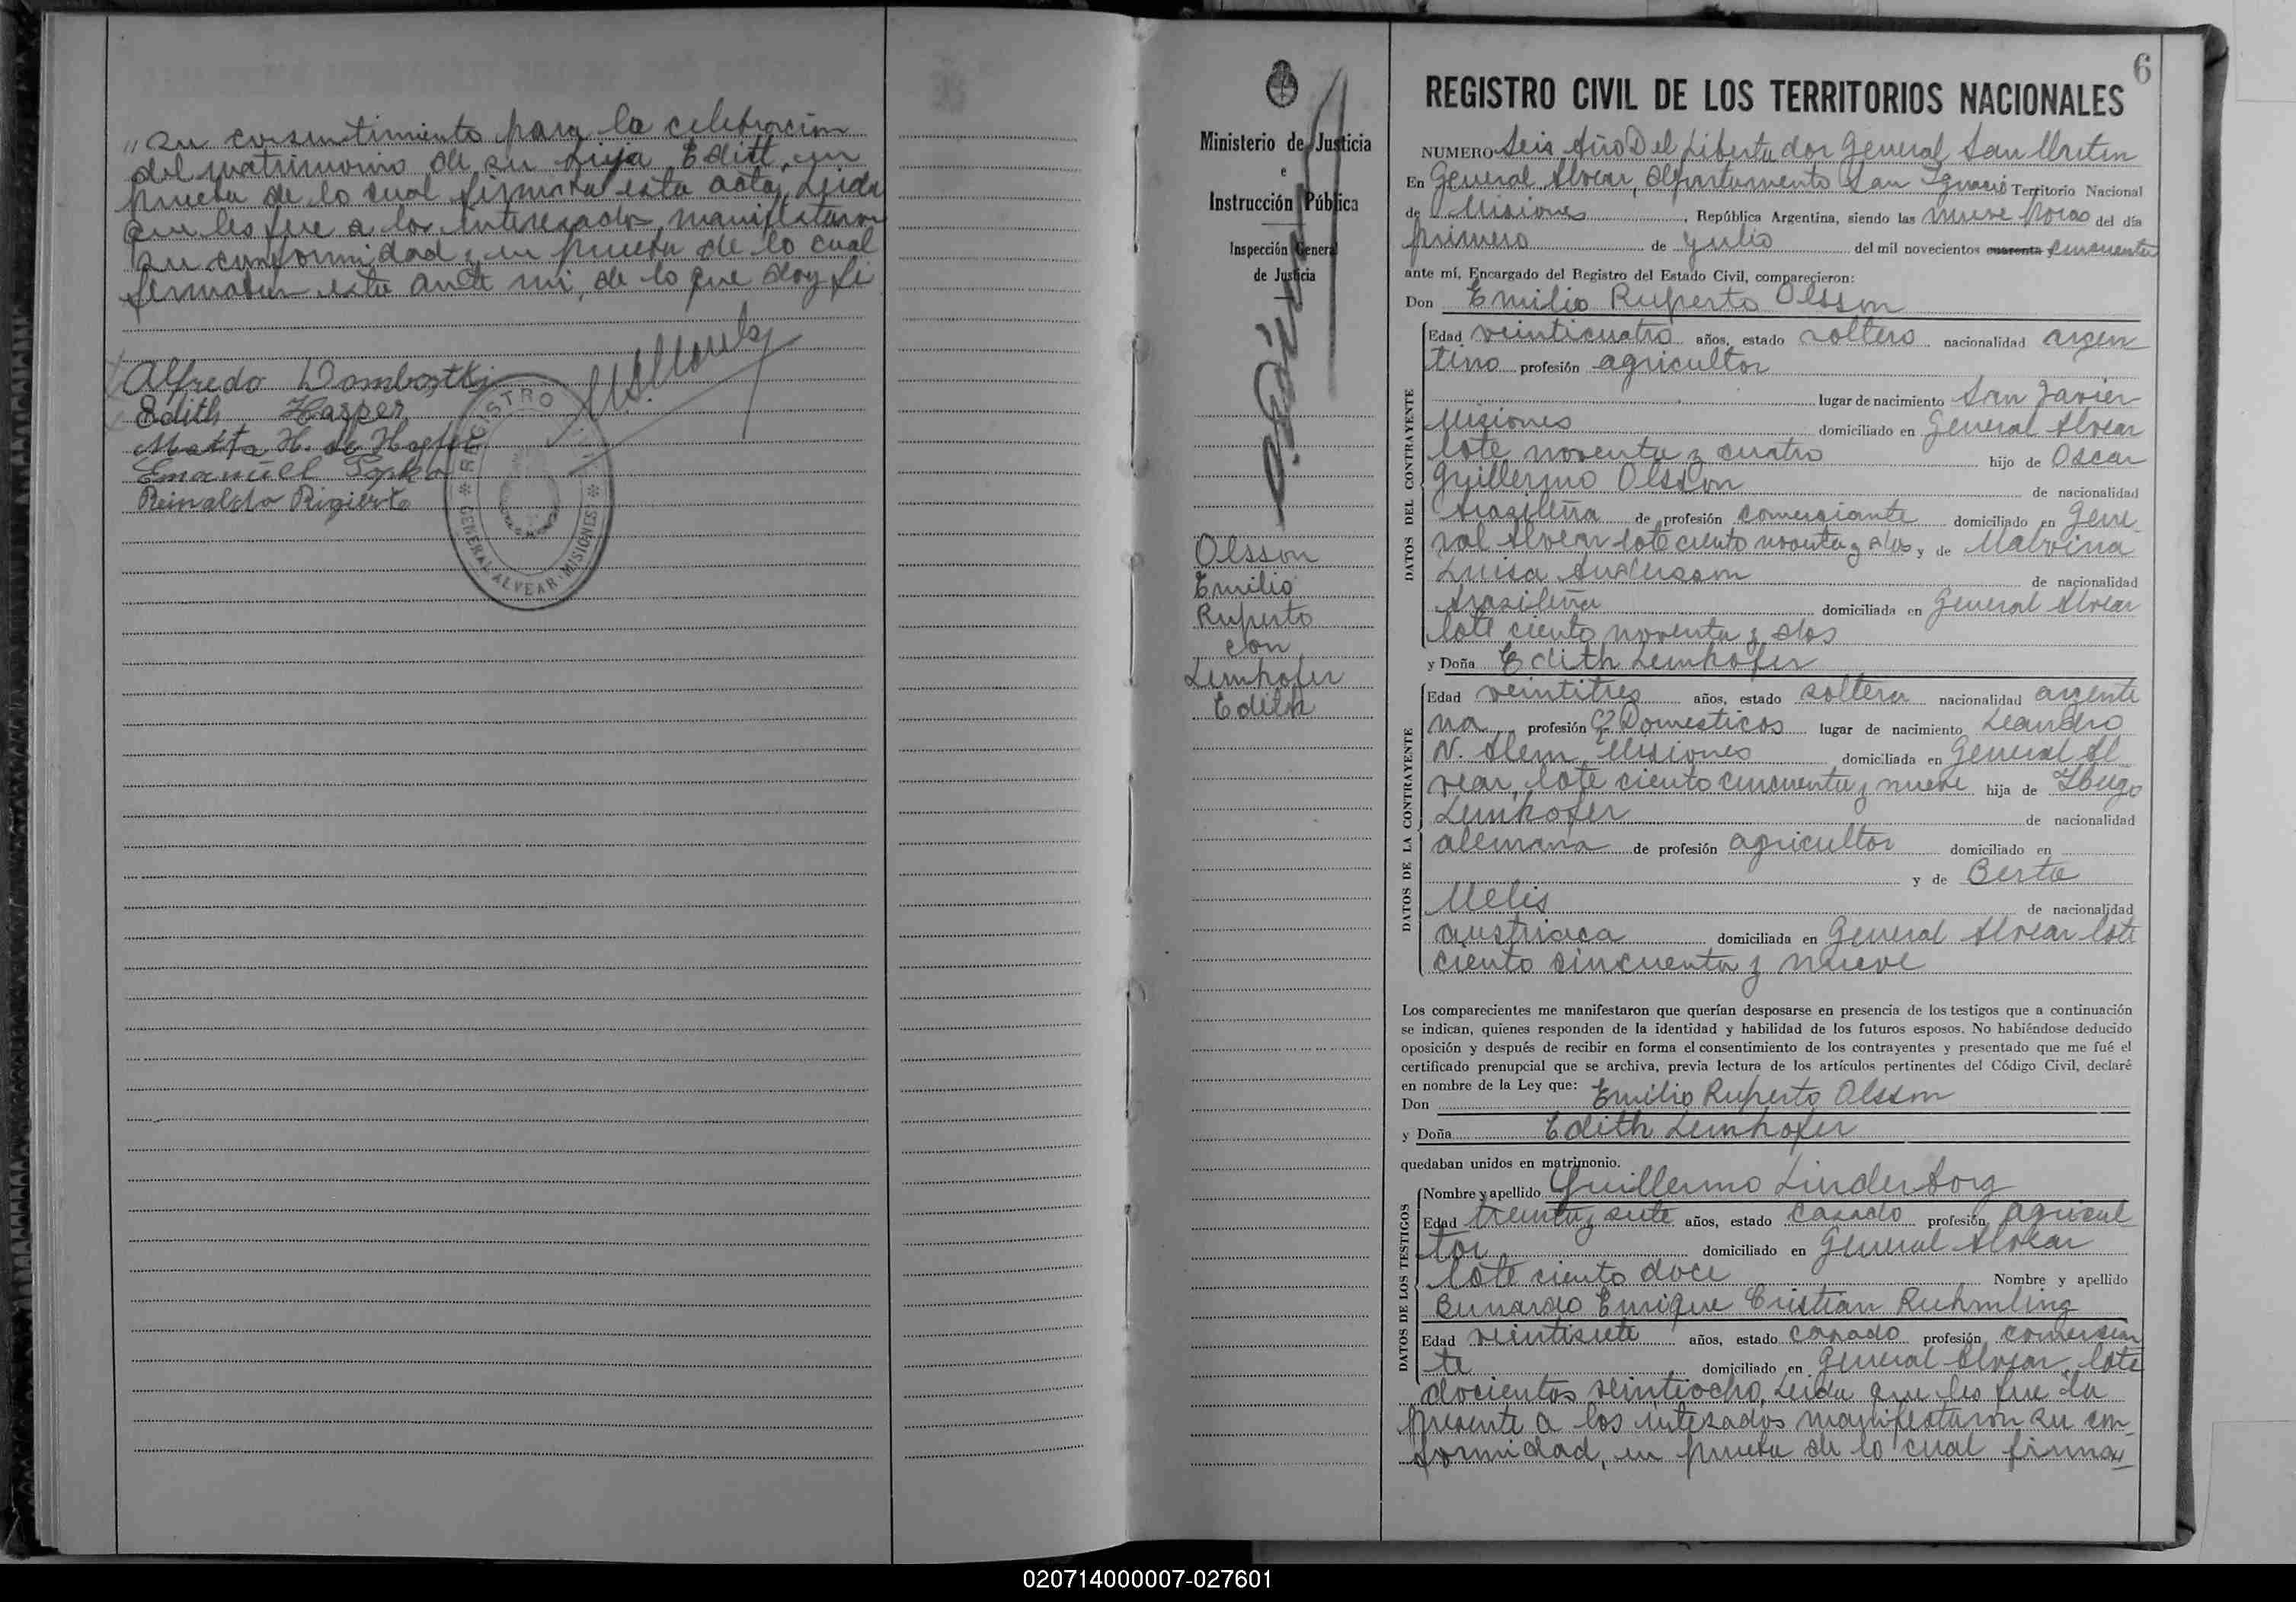 "su consentimiento para la celebración
del matrimonio de su hija Editt, en
prueba de lo cual firmará esta acta, Leida
que les fue a los interesados manifestaron
su conformidad y en prueba de lo cual
firmaban esta ante mi, de lo que doy fé
Alfredo Dombostki
Edith Hasper
Marta H. de Hasper
Emanuel Popko
Reinaldo Rigierto
REGISTRO
GENERAL ALVEAR - MISIONES
Ministerio de Justicia
e
Instrucción Pública
Inspección General
de Justicia
Olsson
Emilio
Ruperto
con
Leinhofer
Edith
6
REGISTRO CIVIL DE LOS TERRITORIOS NACIONALES
NUMERO Seis Año Del Libertador General San Martin
En General Alvear, departamento San Ignacio Territorio Nacional
de Misiones, República Argentina, siendo las nueve horas del día
primero de Julio del mil novecientos cuarenta cincuenta
ante mí, Encargado del Registro del Estado Civil, comparecieron:
Don Emilio Ruperto Olsson
DATOS DEL CONTRAYENTE
Edad veinticuatro años, estado soltero nacionalidad argen
tino profesión agricultor
lugar de nacimiento San Javier
Misiones domiciliado en General Alvear
lote noventa y cuatro hijo de Oscar
Guillermo Olsson de nacionalidad
brasileña de profesión comerciante domiciliado en Gene
ral Alvear lote ciento noventa y dos y de Malvina
Luisa Andersson de nacionalidad
brasileña domiciliada en General Alvear
lote ciento noventa y dos
y Doña Edith Leinhofer
DATOS DE LA CONTRAYENTE
Edad veintitres años, estado soltera nacionalidad argenti
na profesión Q. Domesticos lugar de nacimiento Leandro
N. Alem Misiones domiciliada en General Al
vear, lote ciento cincuenta y nueve hija de Hugo
Leinhofer de nacionalidad
alemana de profesión agricultor domiciliado en
y de Berta
Melis de nacionalidad
austriaca domiciliada en General Alvear lote
ciento sincuenta y nueve
Los comparecientes me manifestaron que querían desposarse en presencia de los testigos que a continuación
se indican, quienes responden de la identidad y habilidad de los futuros esposos. No habiéndose deducido
oposición y después de recibir en forma el consentimiento de los contrayentes y presentado que me fué el
certificado prenupcial que se archiva, previa lectura de los artículos pertinentes del Código Civil, declaré
en nombre de la Ley que:
Don Emilio Ruperto Olsson
y Doña Edith Leinhofer
quedaban unidos en matrimonio.
DATOS DE LOS TESTIGOS
Nombre y apellido Guillermo Linderborg
Edad treinta y siete años, estado casado profesión agricul
tor domiciliado en General Alvear
lote ciento doce Nombre y apellido
Bernardo Enrique Cristian Ruhmling
Edad veintisiete años, estado casado profesión comersian
te domiciliado en General Alvear, lote
docientos veintiocho, Leida que les fue la
presente a los intesados manifestaron su con
formidad, en prueba de lo cual firma
020714000007-027601